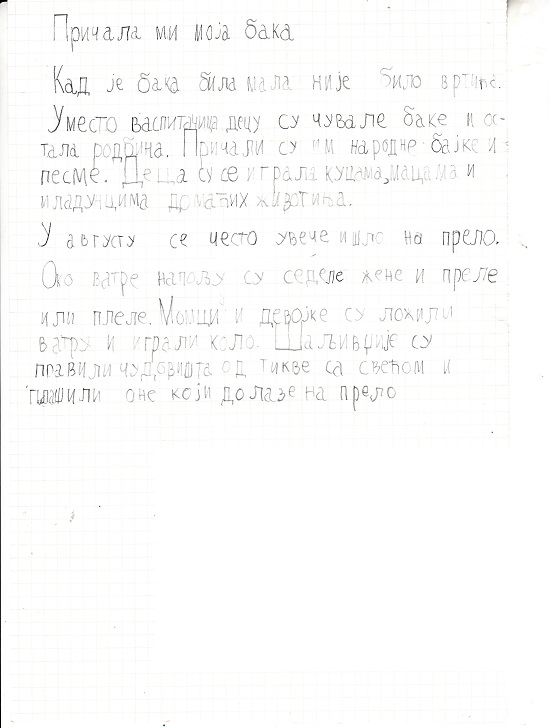 Причала ми моја бака
Кад је бака била мала није било вртића.
Уместо васпитачица децу су чувале баке и ос-
тала родбина. Причали су им народне бајке и
песме. Деца су се играла куцама, мацама и
младунцима домаћих животиња.
У августу се често увече ишло на прело.
Око ватре напољу су седеле жене и преле
или плеле. Момци и девојке су ложили
ватру и играли коло. Шаљивџије су
правили чудовишта од тикве са свећом и
плашили оне који долазе на прело